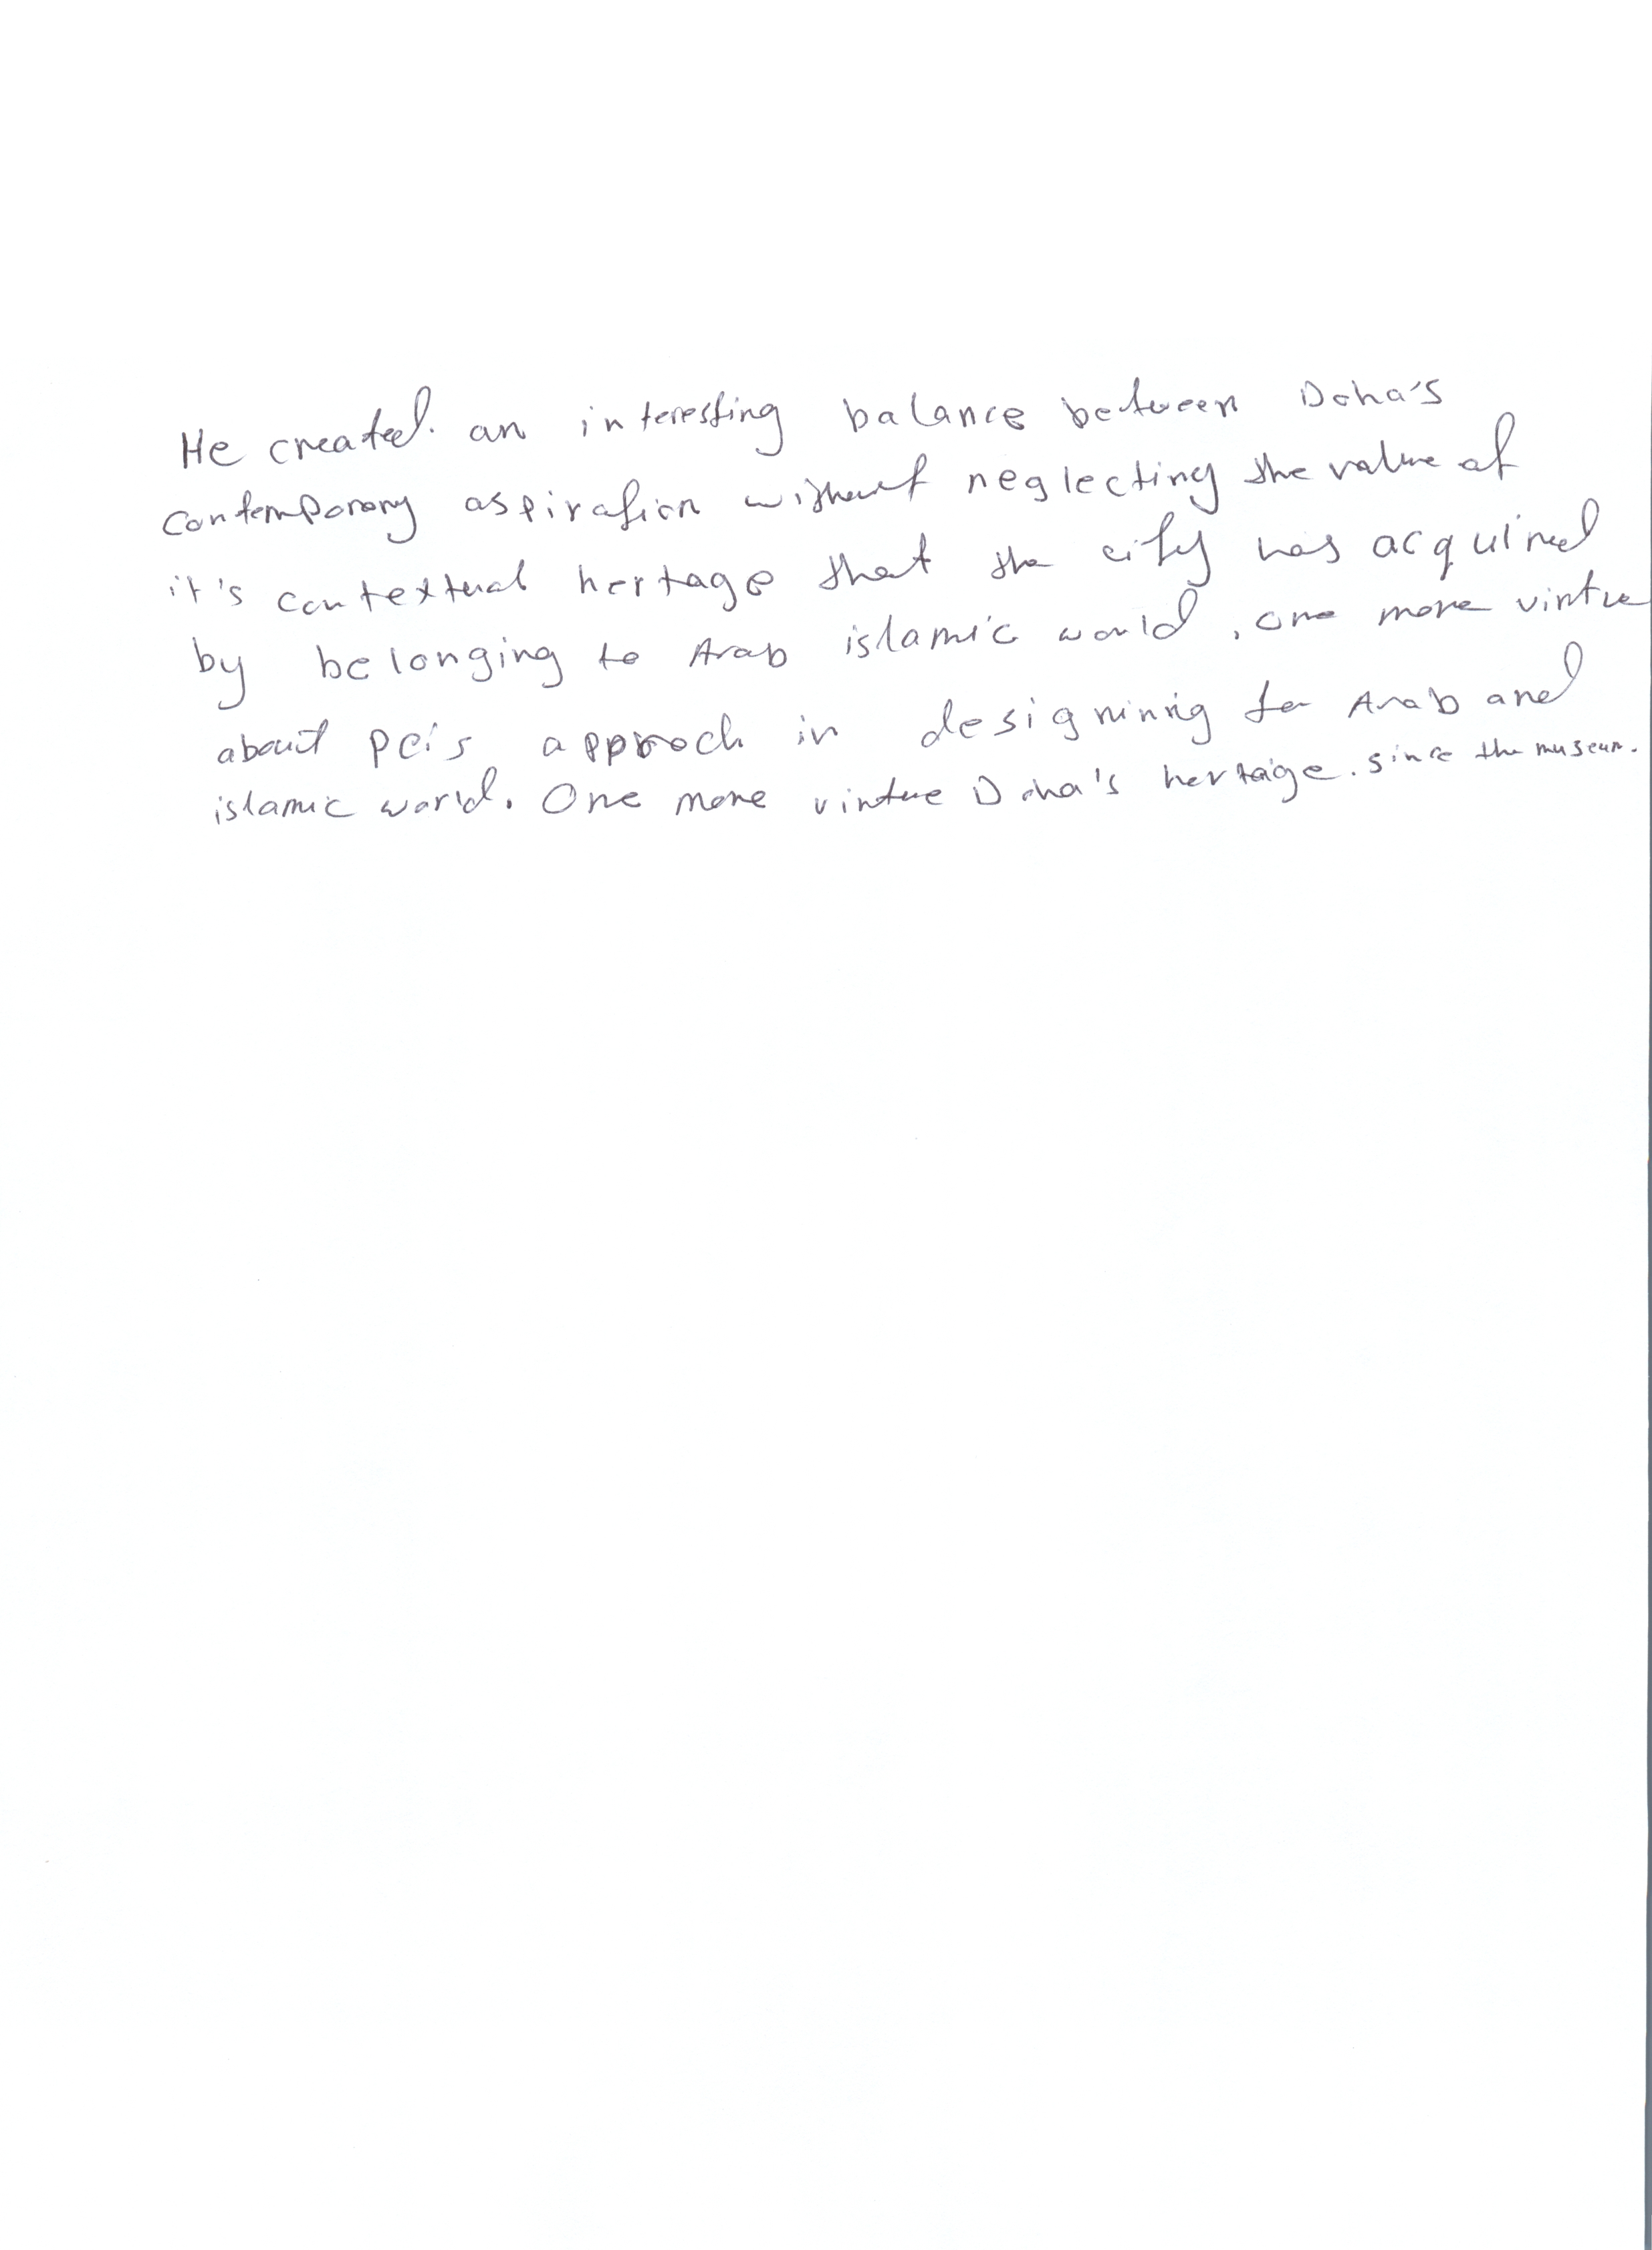 He created. an interesting balance between Doha's
contemporary aspiration without neglecting the value of
it's contextual hertage that the city has acquired
by belonging to Arab islamic world, one more virtue
about pei's approch in designing for Arab and
islamic world. One more virtue Doha's hertaige. since the museum.